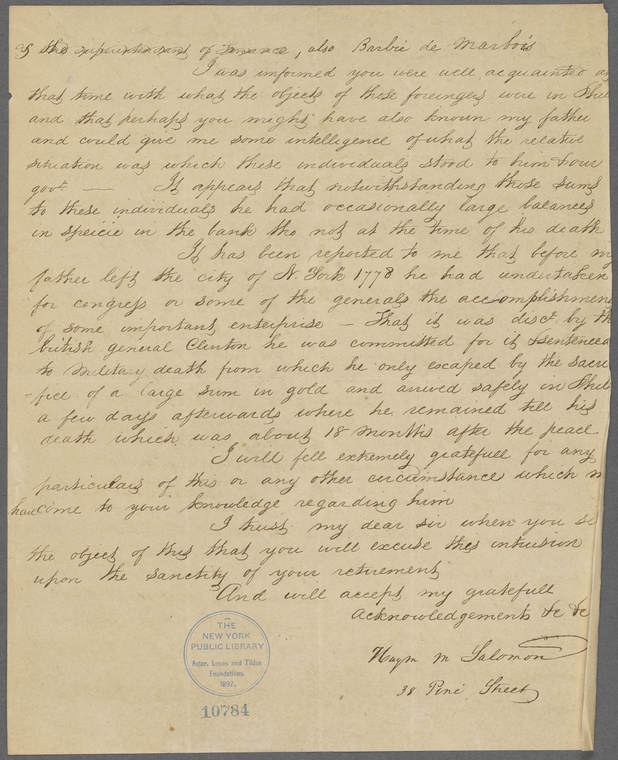 of the superintendant of finance, also Barbie de Marbois
I was informed you were well acquainted at
that time with what the objects of those foreingers were in Phil
and that perhaps you might have also known my father
and could give me some intelligence of what the relative
situation was which these individuals stood to him & our
govt. — It appears that notwithstanding those sums
to these individuals he had occasionally large balances
in speicie in the bank tho not at the time of his death
It has been reported to me that before my
father left the city of N. York 1778 he had undertaken
for congress or some of the generals the accomplishmen
of some important enterprise — That it was discd. by th
british general Clinton he was committed for it & sentenced
to military death from which he only escaped by the sacri
-fice of a large sum in gold and arrived safely in Phil
a few days afterwards where he remained till his
death which was about 18 months after the peace.
I will fell extremely gratefull for any
particulars of this or any other circumstance which m
have come to your knowledge regarding him
I trust my dear sir when you se
the object of this that you will excuse this intrusion
upon the sanctity of your retirement
And will accept my gratefull
acknowledgements &c &c
Haym M Salomon
38 Pine Street
THE
NEW YORK
PUBLIC LIBRARY
Astor, Lenox and Tilden
Foundations.
1897.
10784